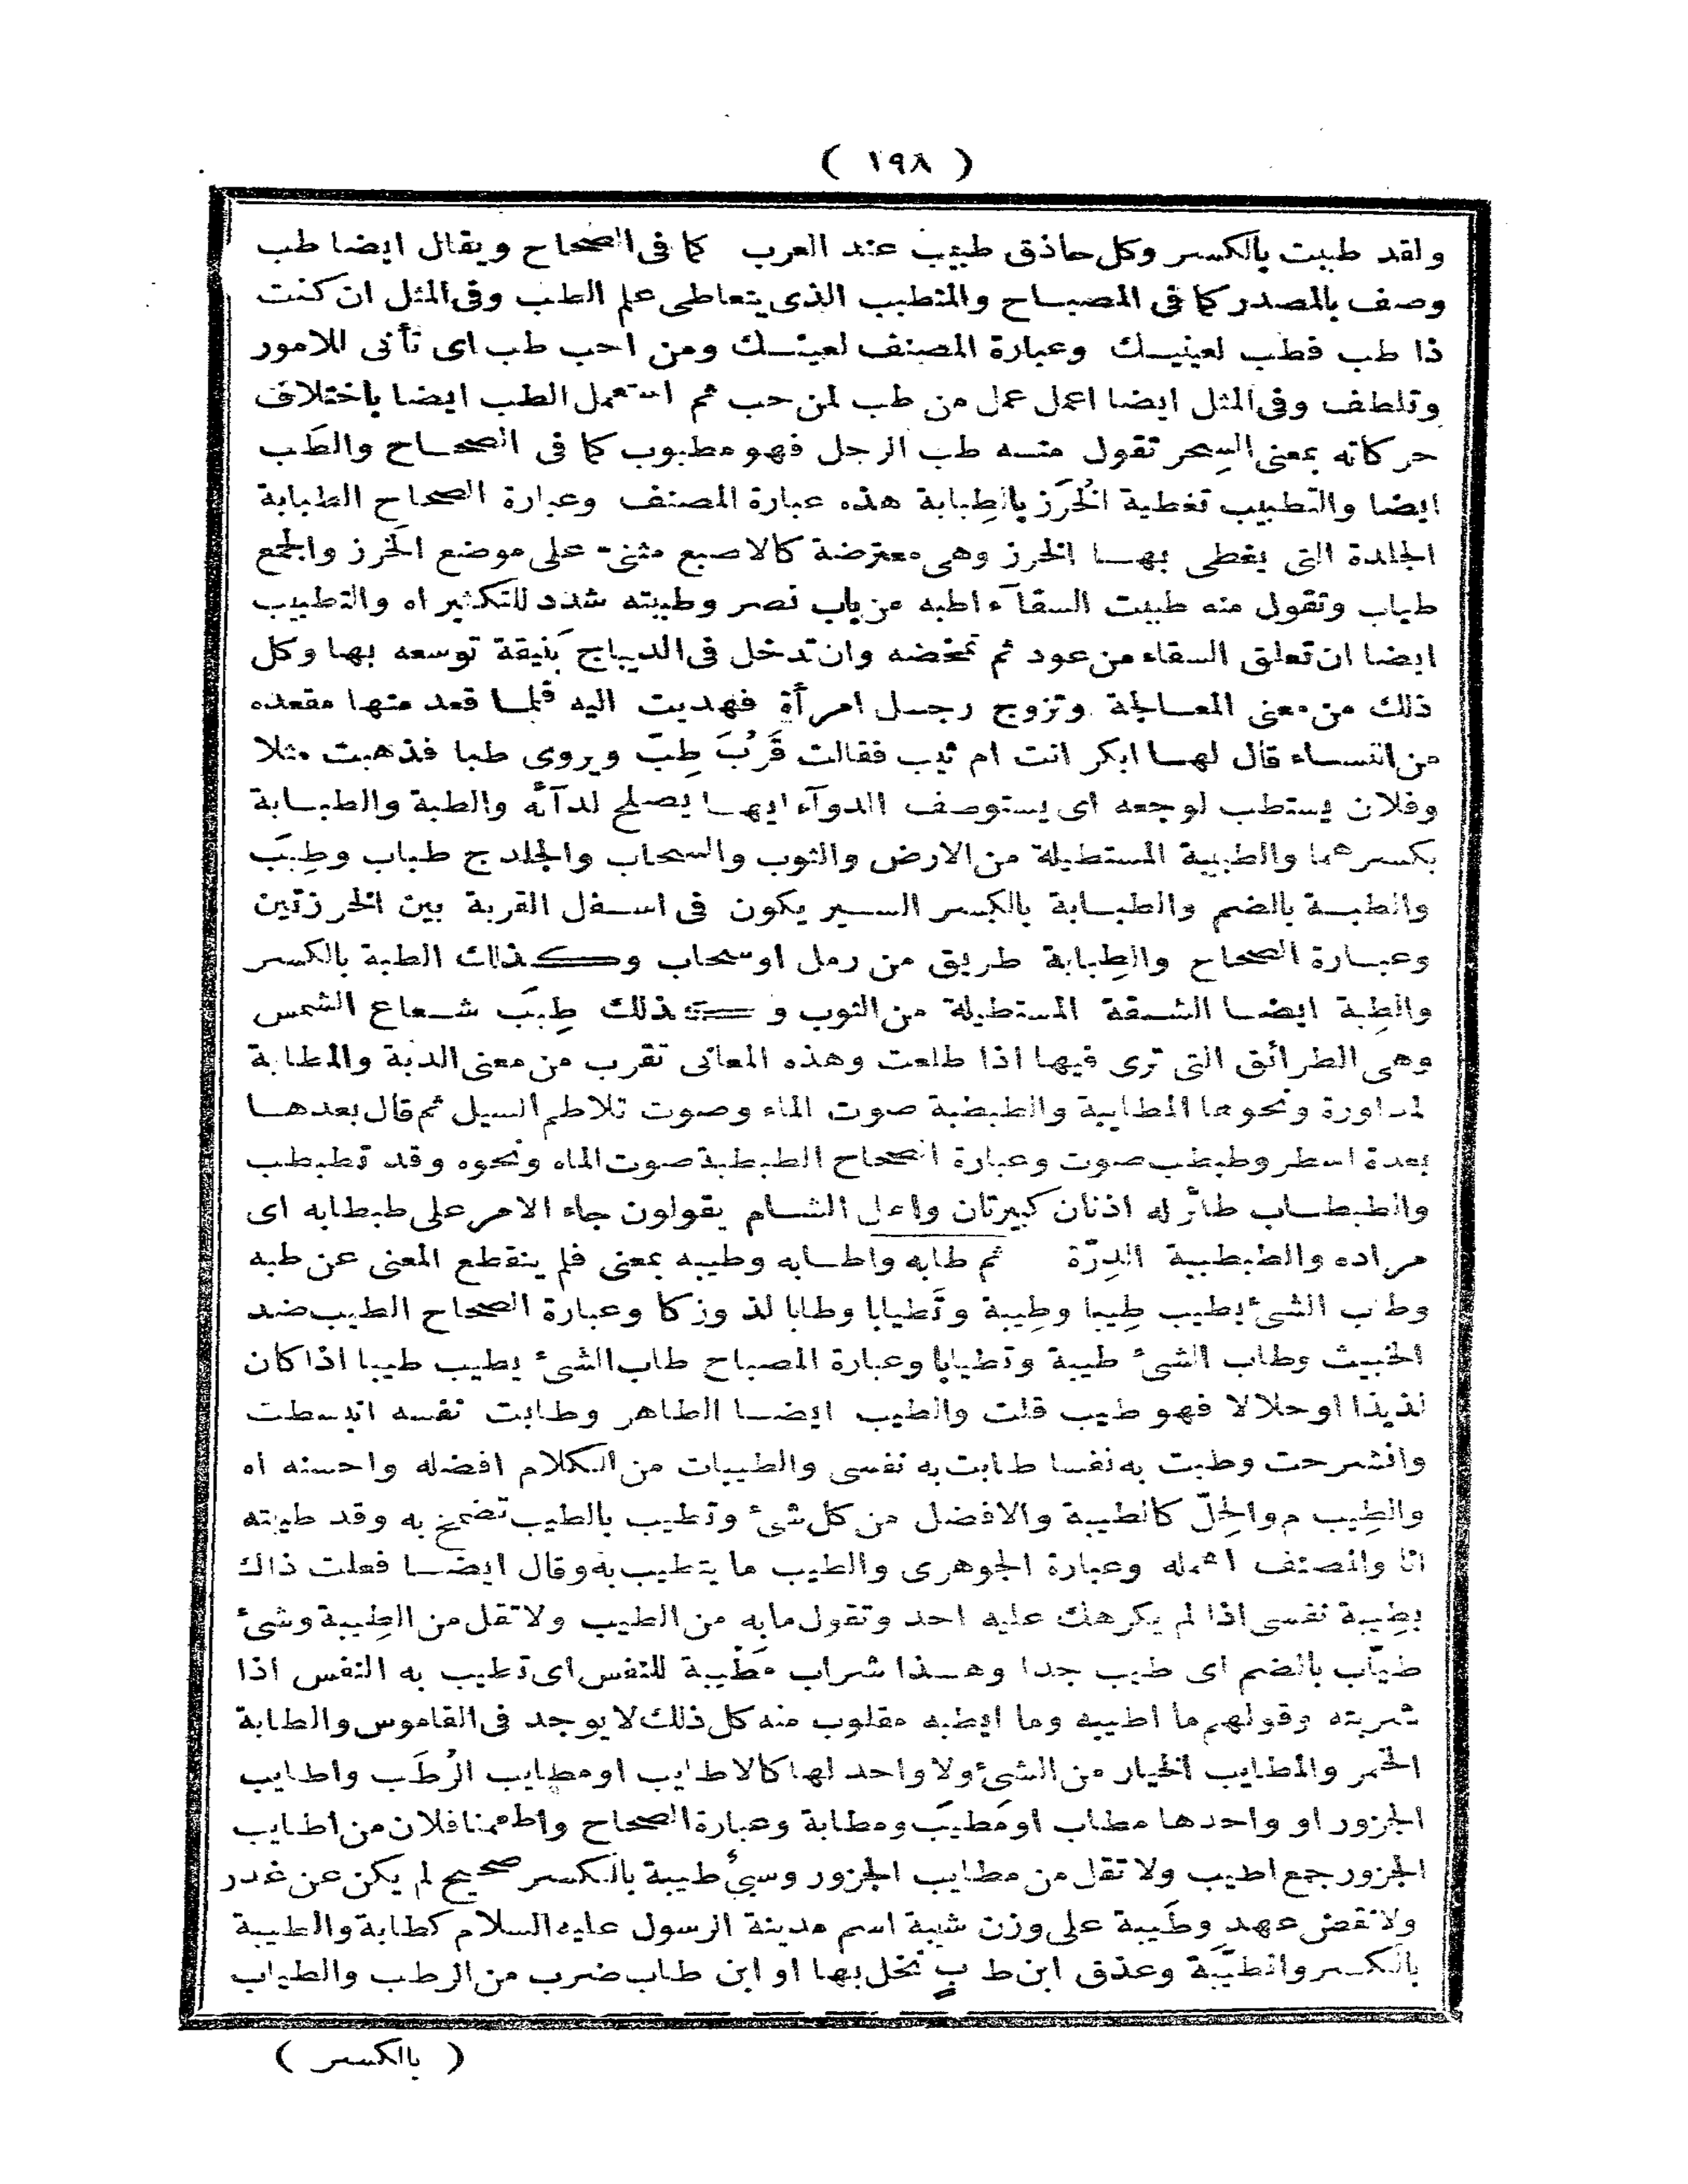 ( ١٩٨ )
ولقد طببت بالكسر وكل حاذق طبيب عند العرب كما فى الصحاح ويقال ايضا طب
وصف بالمصدر كما فى المصباح والمتطبب الذى يتعاطى علم الطب وفى المثل ان كنت
ذا طب فطب لعينيك وعبارة المصنف لعينك ومن احب طب اى تأنى للامور
وتلطف وفى المثل ايضا اعمل عمل من طب لمن حب ثم استعمل الطب ايضا باختلاف
حركاته بمعنى السِحر تقول منه طب الرجل فهو مطبوب كما فى الصحاح والطَب
ايضا والتطبيب تغطية الخُرَز بالطِبابة هذه عبارة المصنف وعبارة الصحاح الطبابة
الجلدة التى يغطى بها الخرز وهى معترضة كالاصبع مثنى على موضع الخَرز والجمع
طباب وتقول منه طببت السقآء اطبه من باب نصر وطببته شدد للتكثير اه والتطبيب
ايضا ان تعلق السقاء من عود ثم تمخضه وان تدخل فى الديباج بَنيقة توسعه بها وكل
ذلك من معنى المعالجة وتزوج رجل امرأة فهديت اليه فلما قعد منها مقعده
من النساء قال لها ابكر انت ام ثيب فقالت قَرُبَ طِبّ ويروى طبا فذهبت مثلا
وفلان يستطب لوجعه اى يستوصف الدوآء ايها يصلح لدآئه والطبة والطبابة
بكسرهما والطبيبة المستطيلة من الارض والثوب والسحاب والجلد ج طباب وطِبَب
والطبة بالضم والطبابة بالكسر السير يكون فى اسفل القربة بين الخرزتين
وعبارة الصحاح والطِبابة طريق من رمل او سحاب وكذلك الطبة بالكسر
والطِبة ايضا الشقة المستطيلة من الثوب وكذلك طِبَب شعاع الشمس
وهى الطرائق التى ترى فيها اذا طلعت وهذه المعانى تقرب من معنى الدبة والمطابة
لمداورة ونحوها المطايبة والطبطبة صوت الماء وصوت تلاطم السيل ثم قال بعدها
بعدة اسطر وطبطب صوت وعبارة الصحاح الطبطبة صوت الماء ونحوه وقد تطبطب
والطبطاب طائر له اذنان كبيرتان واهل الشام يقولون جاء الامر على طبطابه اى
مراده والطبطبية الدِرّة ثم طابه واطابه وطيبه بمعنى فلم ينقطع المعنى عن طبه
وطاب الشئ يطيب طِيبا وطِيبة وتَطيابا وطابا لذ وزكا وعبارة الصحاح الطيب ضد
الخبيث وطاب الشئ طيبة وتطيابا وعبارة المصباح طاب الشئ يطيب طيبا اذا كان
لذيذا او حلالا فهو طيب قلت والطيب ايضا الطاهر وطابت نفسه انبسطت
وانشرحت وطبت به نفسا طابت به نفسى والطيبات من الكلام افضله واحسنه اه
والطِيب م والحِلّ كالطيبة والافضل من كل شئ وتطيب بالطيب تضمخ به وقد طيبته
انا والمصنف اهمله وعبارة الجوهرى والطيب ما يتطيب به وقال ايضا فعلت ذاك
بطِيبة نفسى اذا لم يكرهك عليه احد وتقول مابه من الطيب ولا تقل من الطِيبة وشئ
طيّاب بالضم اى طيب جدا وهذا شراب مَطْيبة للنفس اى تطيب به النفس اذا
شربته وقولهم ما اطيبه وما ايطبه مقلوب منه كل ذلك لا يوجد فى القاموس والطابة
الخمر والمطايب الخيار من الشئ ولا واحد لها كالاطايب او مطايب الرُطَب واطايب
الجزور او واحدها مطاب او مَطيَب ومطابة وعبارة الصحاح واطعمنا فلان من اطايب
الجزور جمع اطيب ولا تقل من مطايب الجزور وسبىٌ طيبة بالكسر صحيح لم يكن عن غدر
ولا نقض عهد وطَيبة على وزن شيبة اسم مدينة الرسول عليه السلام كطابة والطيبة
بالكسر والمطيَّبَة وعذق ابن طاب نخل بها او ابن طاب ضرب من الرطب والطياب
( بالكسر )